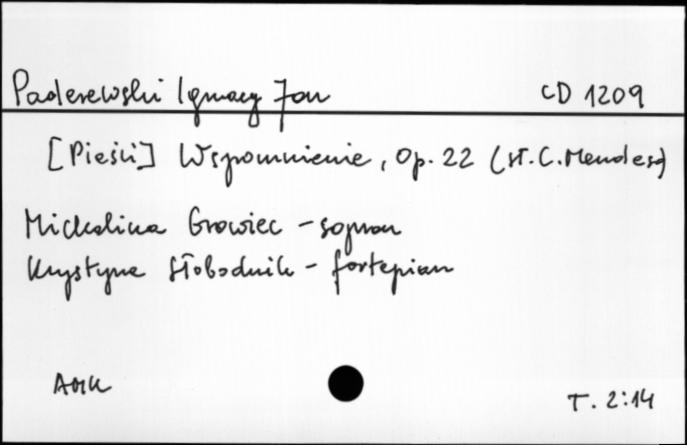 Paderewski Ignacy Jan CD 1209
[Pieśni] Wspomnienie, Op. 22 (sł. C. Mendesa)
Michalina Growiec - sopran
Krystyna Słobodnik - fortepian
AMK
T. 2:14